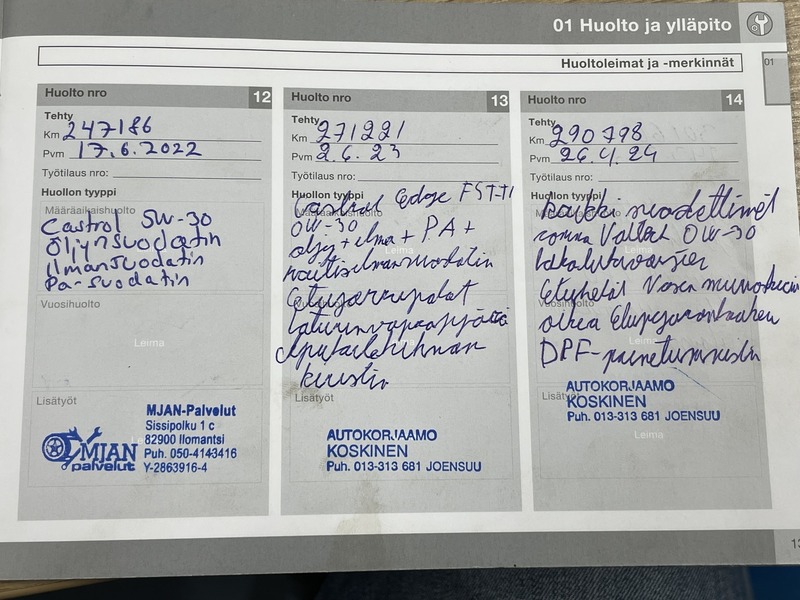 01 Huolto ja ylläpito
Huoltoleimat ja -merkinnät
01
Huolto nro 12
Tehty
Km 247186
Pvm 17.6.2022
Työtilaus nro:
Huollon tyyppi
Määräaikaishuolto
Castrol 5W-30
Öljynsuodatin
ilmansuodatin
Pa-suodatin
Vuosihuolto
Leima
Lisätyöt
MJAN-Palvelut
Sissipolku 1 c
82900 Ilomantsi
Puh. 050-4143416
Y-2863916-4
MJAN
palvelut
Huolto nro 13
Tehty
Km 271221
Pvm 2.6.23
Työtilaus nro:
Huollon tyyppi
Määräaikaishuolto
Castrol Edge FST-TI
0W-30
öljy + ilma + PA +
raitisilmansuodatin
Leima
Etujarrupalat
Vuosihuolto
laturinvapaapyörä
Apulaitehihnan
kiristin
Lisätyöt
AUTOKORJAAMO
KOSKINEN
Puh. 013-313 681 JOENSUU
Huolto nro 14
Tehty
Km 290798
Pvm 26.4.24
Työtilaus nro:
Huollon tyyppi
Määräaikaishuolto
kaikki suodattimet
comma 0W-30
Leima
Vuosihuolto
oikea
DPF-
Lisätyöt
AUTOKORJAAMO
KOSKINEN
Puh. 013-313 681 JOENSUU
Leima